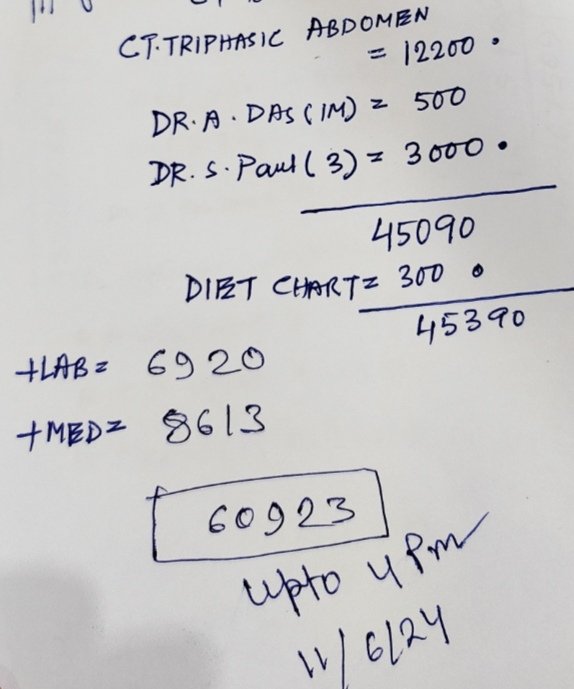 CT.TRIPHASIC ABDOMEN
= 12200 .
DR. A. DAS (IM) = 500
DR. S. Paul (3) = 3000 .
45090
DIET CHART = 300 .
45390
+LAB = 6920
+MED = 8613
60923
Upto 4 Pm
11/6/24